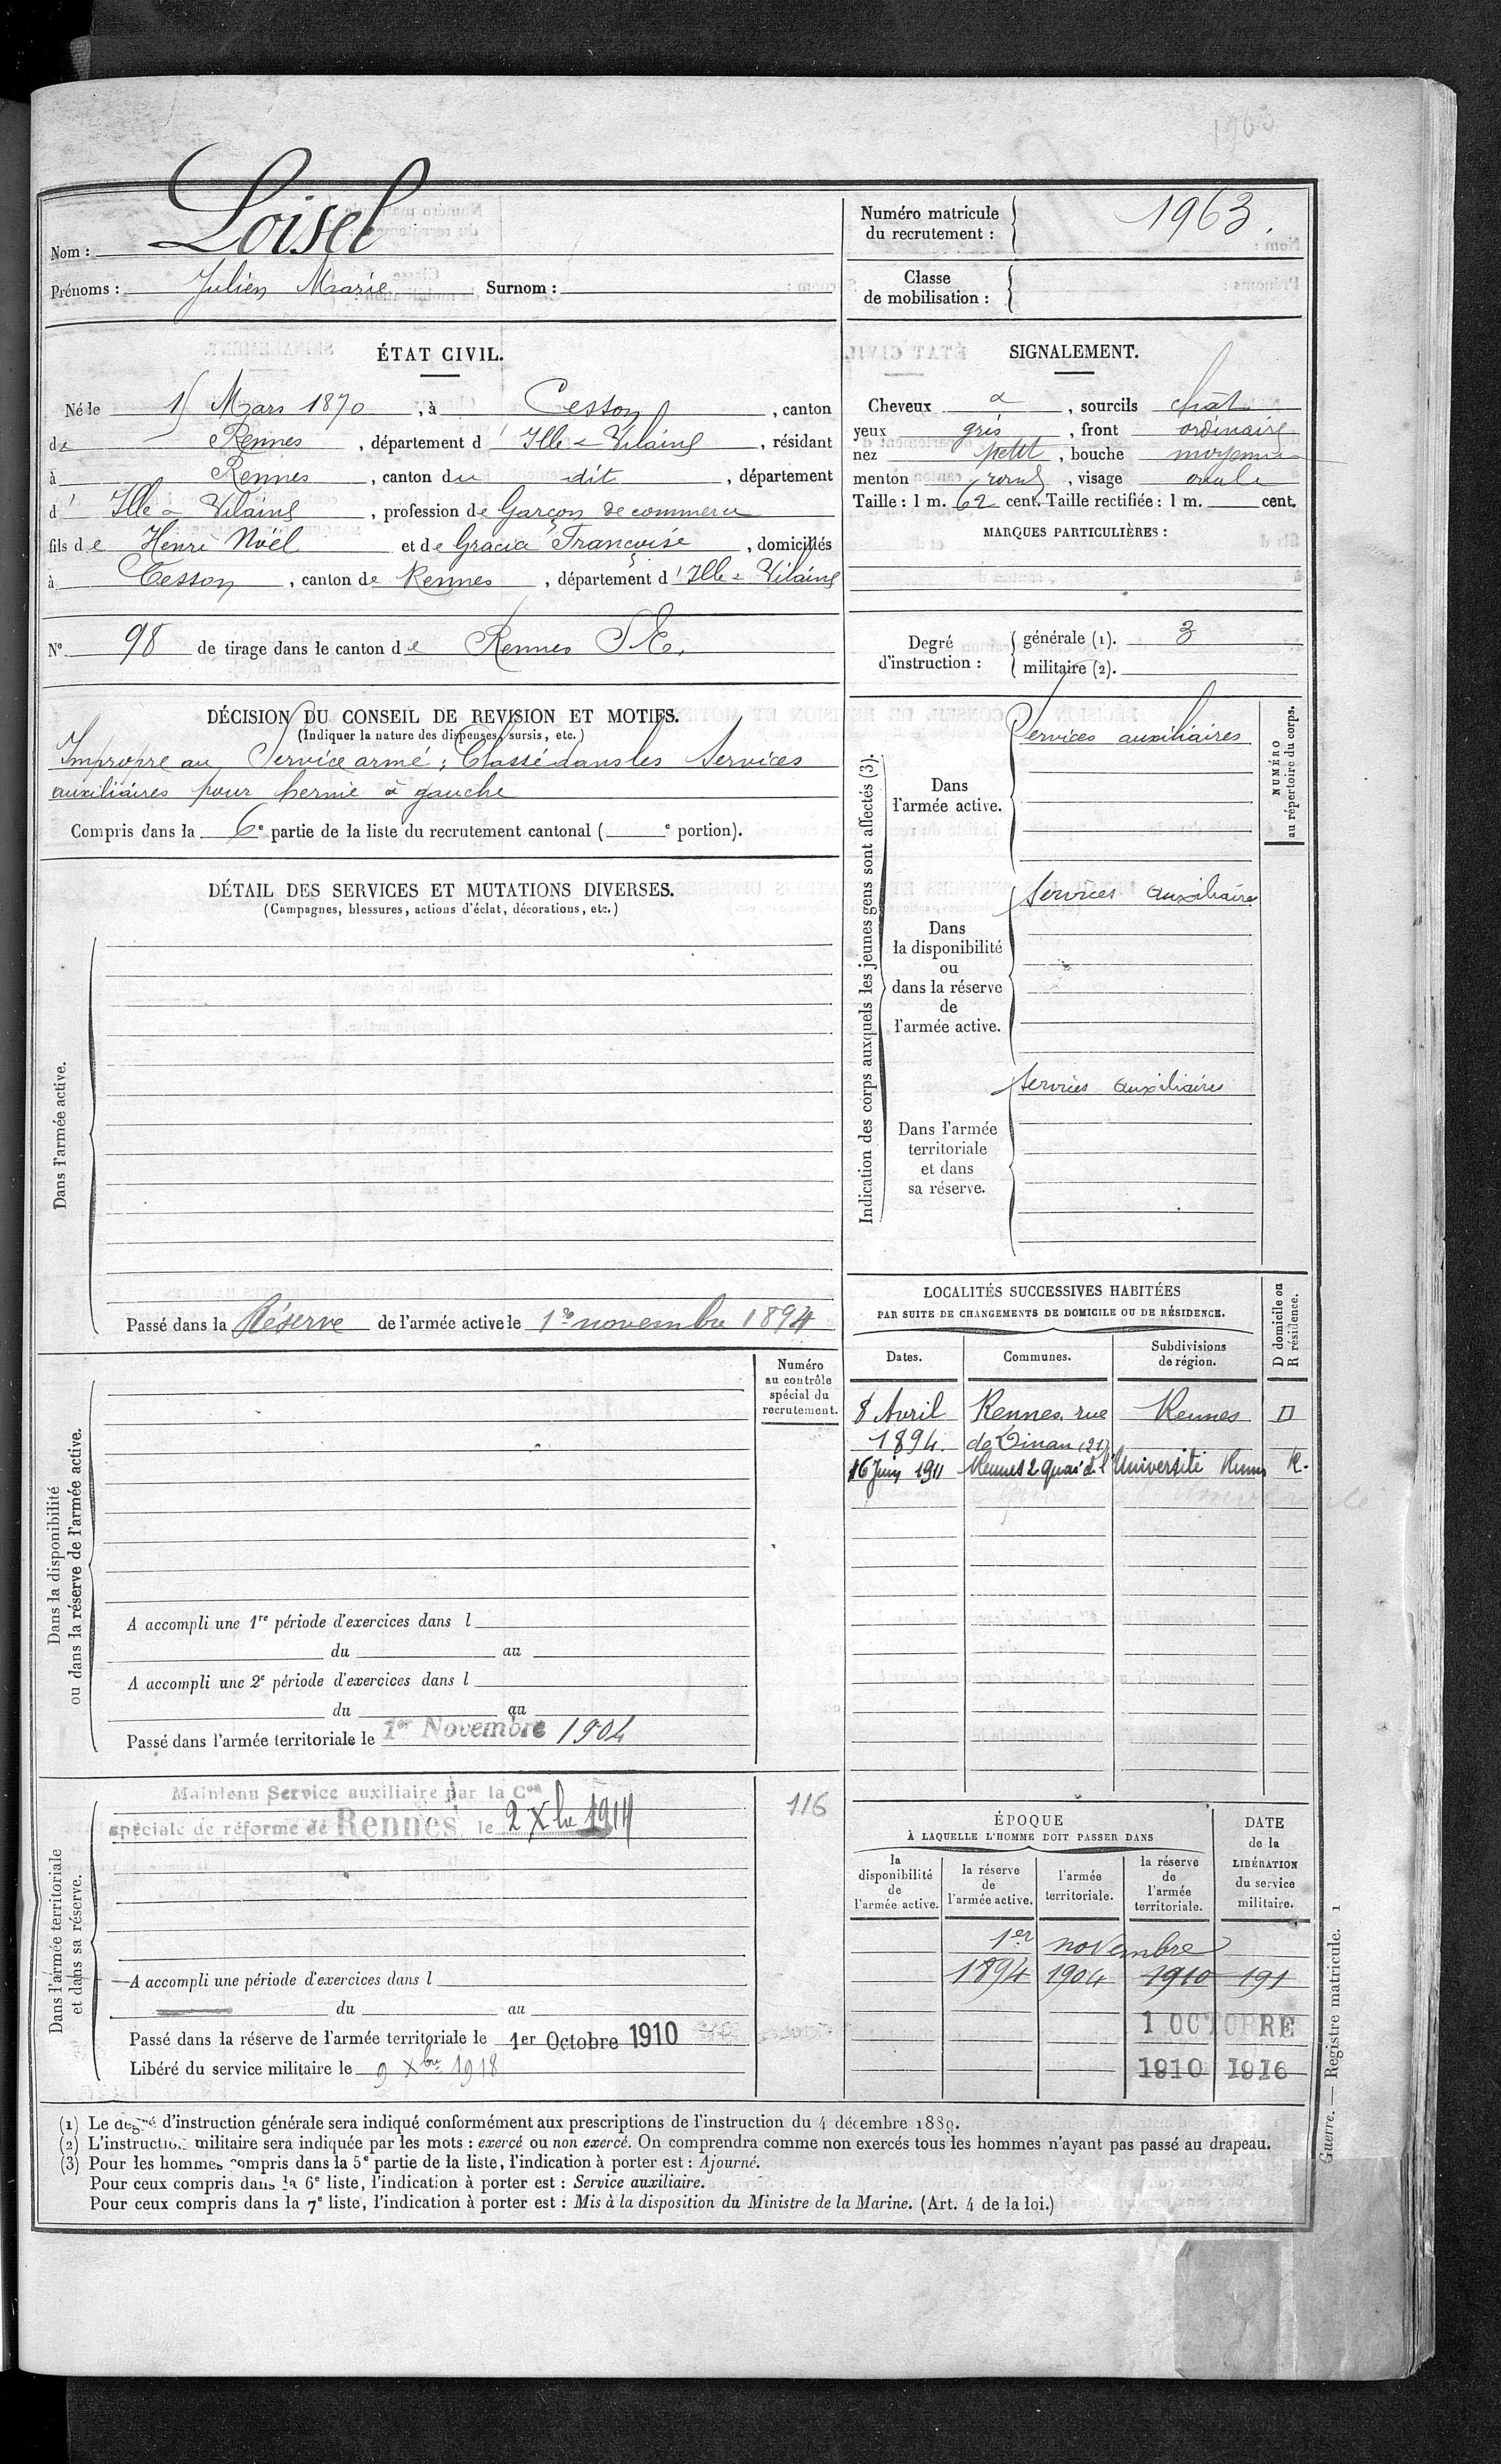 1963
Nom : Loisel
Prénoms : Julien Marie Surnom :
Numéro matricule
du recrutement : 1963.
Classe
de mobilisation :
ÉTAT CIVIL.
Né le 15 Mars 1870, à Cesson, canton
de Rennes, département d'Ille & Vilaine, résidant
à Rennes, canton du dit, département
d'Ille & Vilaine, profession de Garçon de commerce
fils de Henri Noël et de Gracia Françoise, domiciliés
à Cesson, canton de Rennes, département d'Ille & Vilaine
N° 98 de tirage dans le canton de Rennes S.E.
SIGNALEMENT.
Cheveux &, sourcils chât
yeux gris, front ordinaire
nez petit, bouche moyenne
menton rond, visage ovale
Taille : 1 m. 62 cent. Taille rectifiée : 1 m. cent.
MARQUES PARTICULIÈRES :
Degré
d'instruction :
générale (1). 3
militaire (2).
DÉCISION DU CONSEIL DE REVISION ET MOTIFS.
(Indiquer la nature des dispenses, sursis, etc.)
Impropre au Service armé ; Classé dans les Services
auxiliaires pour hernie à gauche
Compris dans la 6e partie de la liste du recrutement cantonal ( e portion).
DÉTAIL DES SERVICES ET MUTATIONS DIVERSES.
(Campagnes, blessures, actions d'éclat, décorations, etc.)
Dans l'armée active.
Passé dans la Réserve de l'armée active le 1er novembre 1894
Indication des corps auxquels les jeunes gens sont affectés (3).
NUMÉRO
au répertoire du corps.
Dans
l'armée active.
Services auxiliaires
Dans
la disponibilité
ou
dans la réserve
de
l'armée active.
Services auxiliaires
Dans l'armée
territoriale
et dans
sa réserve.
Services auxiliaires
Dans la disponibilité
ou dans la réserve de l'armée active.
Numéro
au contrôle
spécial du
recrutement.
A accompli une 1re période d'exercices dans l
du au
A accompli une 2e période d'exercices dans l
du au
Passé dans l'armée territoriale le 1er Novembre 1904
LOCALITÉS SUCCESSIVES HABITÉES
PAR SUITE DE CHANGEMENTS DE DOMICILE OU DE RÉSIDENCE.
D domicile ou
R résidence.
Dates. Communes. Subdivisions
de région.
8 Avril Rennes, rue Rennes D
1894. de Dinan (21)
16 Juin 1911 Rennes 2 Quai de l'Université Rennes R.
Dans l'armée territoriale
et dans sa réserve.
Maintenu Service auxiliaire par la Con
spéciale de réforme de Rennes le 2 Xbre 1914
116
A accompli une période d'exercices dans l
du au
Passé dans la réserve de l'armée territoriale le 1er Octobre 1910
Libéré du service militaire le 9 Xbre 1918
ÉPOQUE
À LAQUELLE L'HOMME DOIT PASSER DANS
la
disponibilité
de
l'armée active.
la réserve
de
l'armée active.
l'armée
territoriale.
la réserve
de
l'armée
territoriale.
DATE
de la
LIBÉRATION
du service
militaire.
1er novembre
1894 1904 1910 191
1 OCTOBRE
1910 1916
(1) Le degré d'instruction générale sera indiqué conformément aux prescriptions de l'instruction du 4 décembre 1889.
(2) L'instruction militaire sera indiquée par les mots : exercé ou non exercé. On comprendra comme non exercés tous les hommes n'ayant pas passé au drapeau.
(3) Pour les hommes compris dans la 5e partie de la liste, l'indication à porter est : Ajourné.
Pour ceux compris dans la 6e liste, l'indication à porter est : Service auxiliaire.
Pour ceux compris dans la 7e liste, l'indication à porter est : Mis à la disposition du Ministre de la Marine. (Art. 4 de la loi.)
Guerre. — Registre matricule. 1